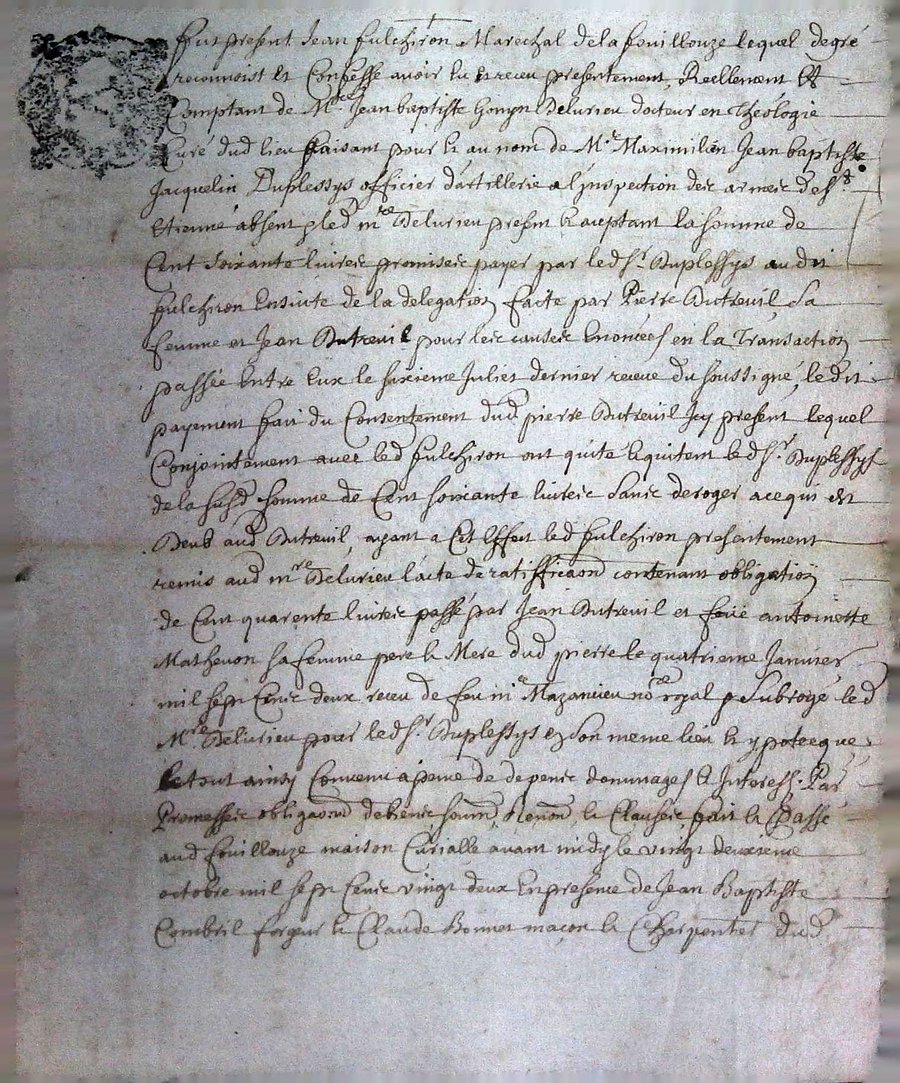 fut present Jean fulchiron Marechal de la fouillouze lequel de gré
reconnoist et Confesse avoir eu et receu presentement, Reellement et
Comptant de Mre Jean baptiste Delurieu docteur en Theologie
Curé dud lieu faisant pour et au nom de Mr Maximilien Jean baptiste
Jacquelin Duplessys officier d'artillerie a l'inspection des armes de St
Etienne absent led mre Delurieu presnt et aceptant la somme de
Cent soixante livres promises payer par led Sr Duplessys audit
fulchiron Ensuite de la delegation faite par Pierre Dutreuil sa
femme et Jean Dutreuil pour les causes Enoncées en la Transaction
passée Entre Eux le sixieme Juliet dernier receue du soussigné, ledit
payement fait du Consentement dud pierre Dutreuil Icy present lequel
Conjointement avec led fulchiron ont quité et quitent led Sr Duplessys
de la susd somme de Cent soixante livres sans deroger a ce qui est
Deub aud Dutreuil, ayant a Cet Effect led fulchiron presentement
remis aud mre Delurieu l'acte de ratiffication contenant obligation
de Cent quarente livres passé par Jean Dutreuil et feue antoinette
Mathevon sa femme pere et Mere dud pierre le quatrieme Janvier
mil sept Cens deux receu de feu me Mazancieu nore royal Subrogé led
Mre Delurieu pour led Sr Duplessys en son meme lieu et ypoteque
le tout ainsy Convenu a peine de depens dommages et Interess. Par
Promesses obligaons de biens soumn Renonn et Clauses fait et Passé
aud fouillouze maison Curialle avant midy le vingt deuxieme
octobre mil sept Cens vingt deux En presence de Jean Baptiste
Combril forgeur et Claude Bonnet maçon et Charpentier dud